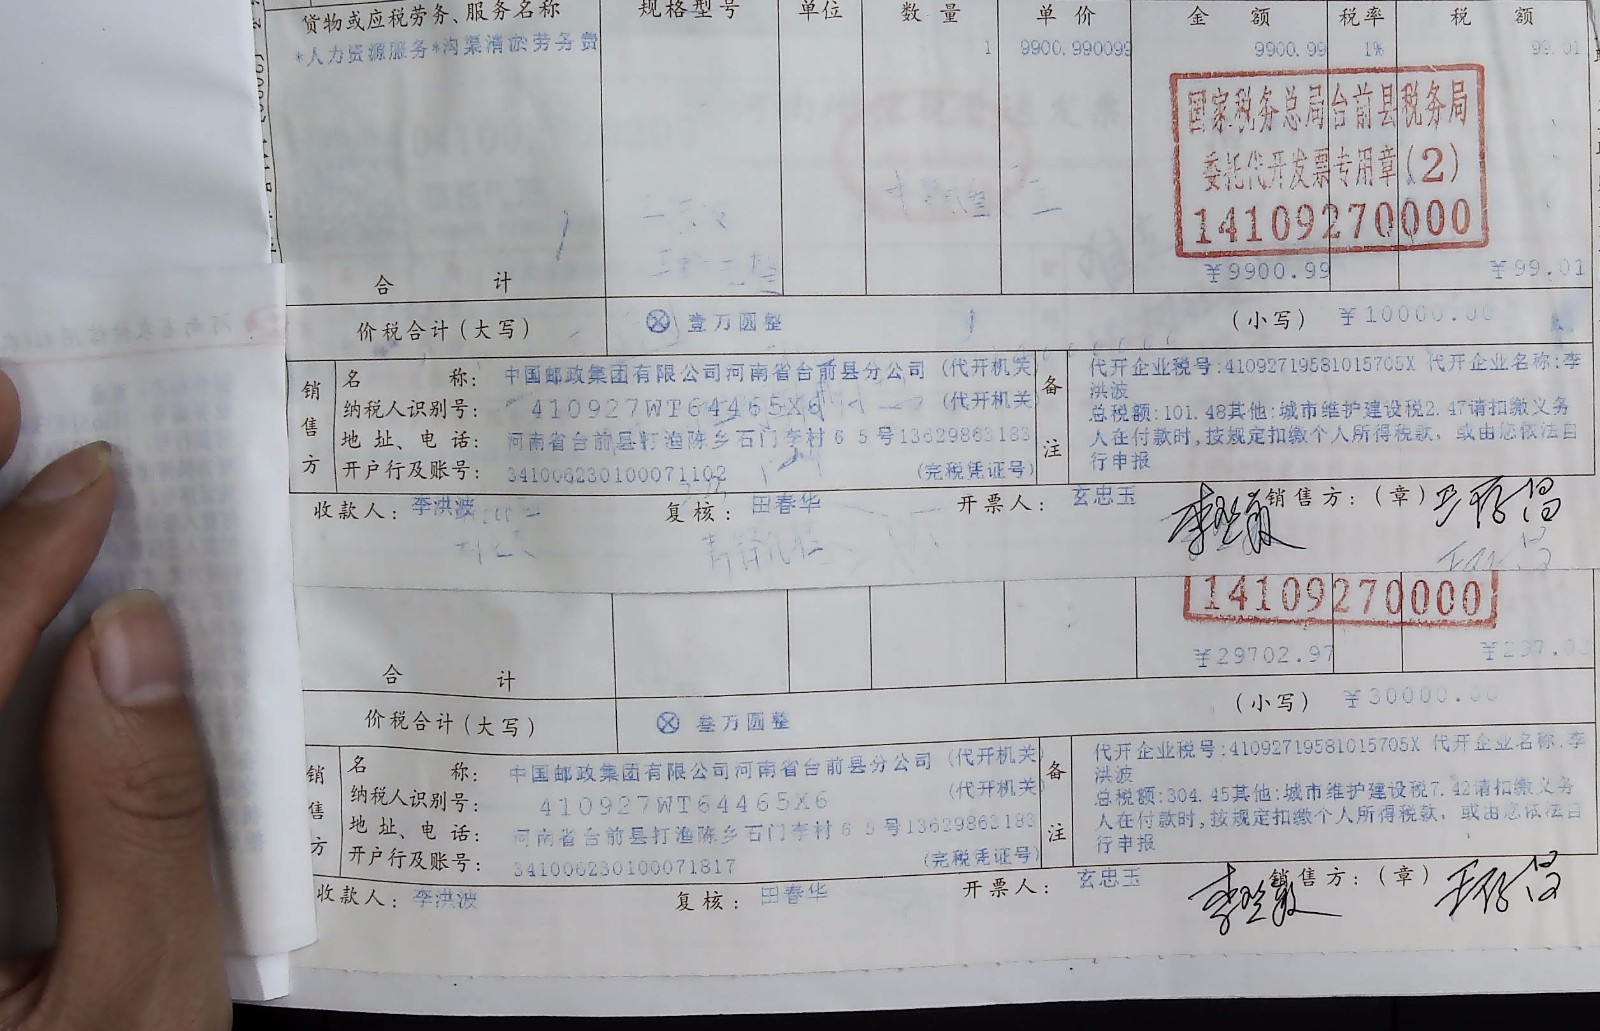 货物或应税劳务、服务名称 规格型号 单位 数量 单价 金额 税率 税额
*人力资源服务*沟渠清淤劳务费 1 9900.990099 9900.99 1% 99.01
国家税务总局台前县税务局
委托代开发票专用章(2)
14109270000
合计 ¥9900.99 ¥99.01
价税合计(大写) ⊗ 壹万圆整 (小写) ¥10000.00
销售方
名称: 中国邮政集团有限公司河南省台前县分公司 (代开机关
纳税人识别号: 410927WT64465X6 (代开机关
地址、电话: 河南省台前县打渔陈乡石门李村65号13629863183
开户行及账号: 341006230100071102 (完税凭证号)
备注
代开企业税号:41092719581015705X 代开企业名称:李
洪波
总税额:101.48其他:城市维护建设税2.47请扣缴义务
人在付款时,按规定扣缴个人所得税款，或由您依法自
行申报
收款人: 李洪波 复核: 田春华 开票人: 玄忠玉 销售方:(章)
14109270000
合计 ¥29702.97
价税合计(大写) ⊗ 叁万圆整 (小写) ¥30000.00
销售方
名称: 中国邮政集团有限公司河南省台前县分公司 (代开机关
纳税人识别号: 410927WT64465X6 (代开机关
地址、电话: 河南省台前县打渔陈乡石门李村65号13629863183
开户行及账号: 341006230100071817 (完税凭证号)
备注
代开企业税号:41092719581015705X 代开企业名称:李
洪波
总税额:304.45其他:城市维护建设税7.42请扣缴义务
人在付款时,按规定扣缴个人所得税款，或由您依法自
行申报
收款人: 李洪波 复核: 田春华 开票人: 玄忠玉 销售方:(章)